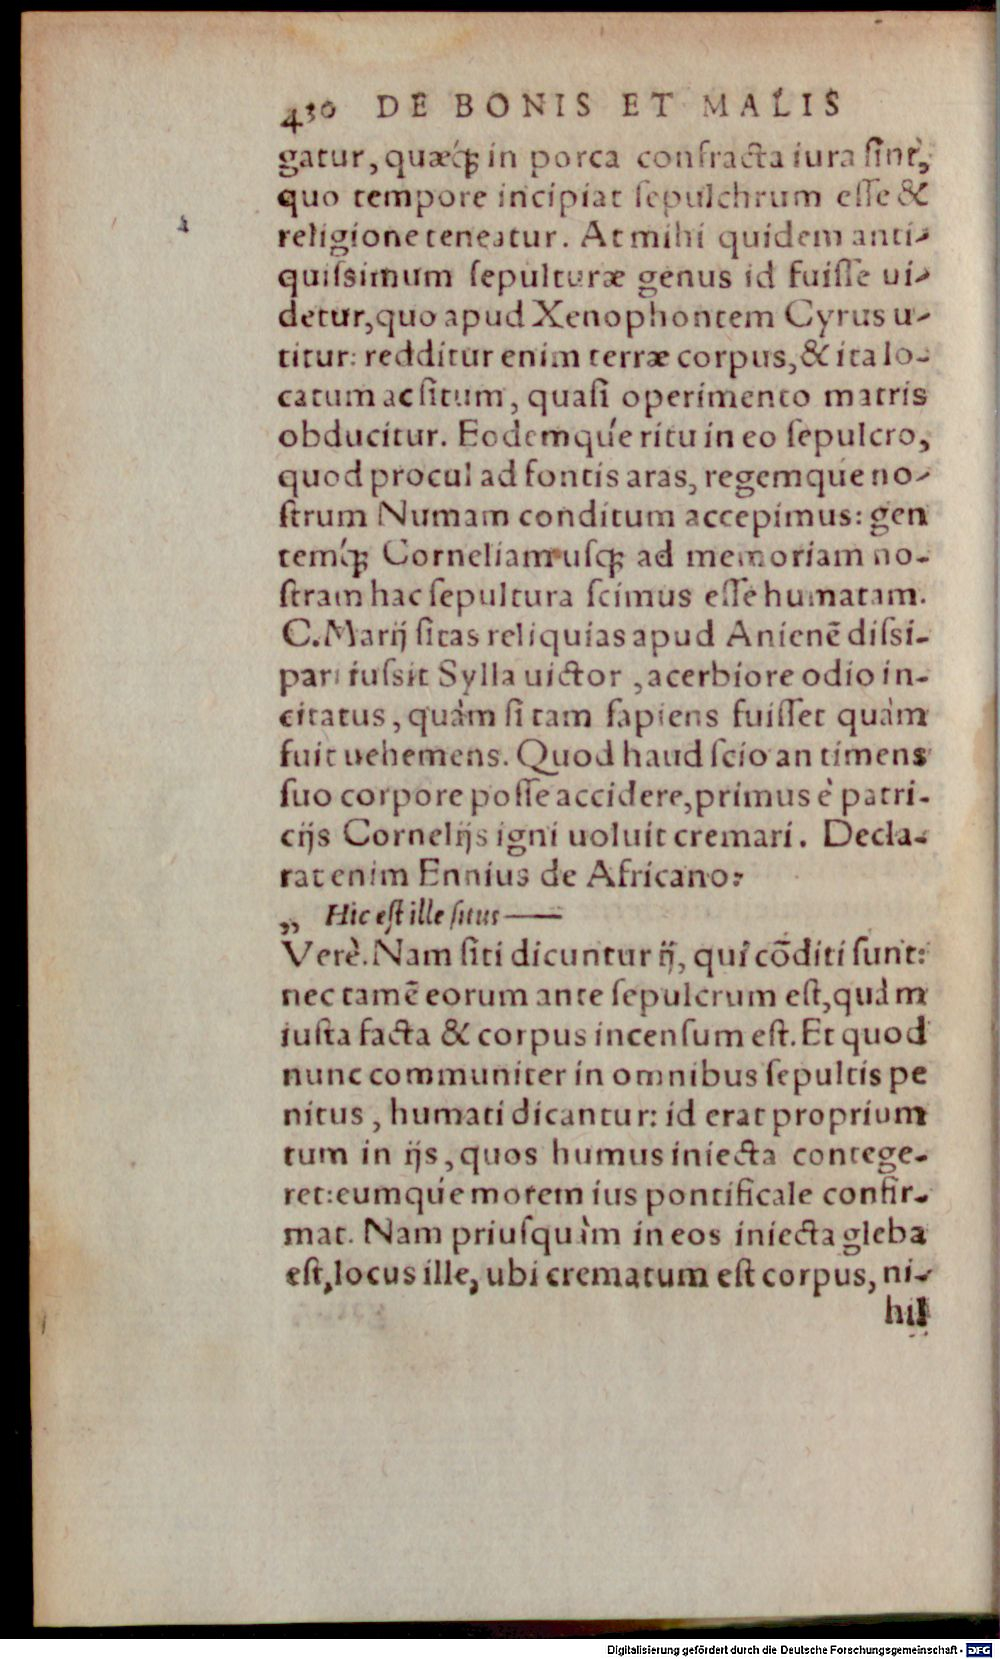 430 DE BONIS ET MALIS
gatur, quæq́ꝫ in porca confracta iura ſint,
quo tempore incipiat ſepulchrum eſſe &
religione teneatur. At mihi quidem anti-
quiſsimum ſepulturæ genus id fuiſſe ui-
detur, quo apud Xenophontem Cyrus u-
titur: redditur enim terræ corpus, & ita lo-
catum ac ſitum, quaſi operimento matris
obducitur. Eodemqúe ritu in eo ſepulcro,
quod procul ad fontis aras, regemqúe no-
ſtrum Numam conditum accepimus: gen
temq́ꝫ Corneliam uſqꝫ ad memoriam no-
ſtram hac ſepultura ſcimus eſſe humatam.
C. Marij ſitas reliquias apud Anienē diſsi-
pari iuſsit Sylla uictor, acerbiore odio in-
citatus, quàm ſi tam ſapiens fuiſſet quàm
fuit uehemens. Quod haud ſcio an timens
ſuo corpore poſſe accidere, primus è patri-
cijs Cornelijs igni uoluit cremari. Decla-
rat enim Ennius de Africano:
„ Hic eſt ille ſitus——
Verè. Nam ſiti dicuntur ij, qui cōditi ſunt:
nec tamē eorum ante ſepulcrum eſt, quàm
iuſta facta & corpus incenſum eſt. Et quod
nunc communiter in omnibus ſepultis pe
nitus, humati dicantur: id erat proprium
tum in ijs, quos humus iniecta contege-
ret: eumqúe morem ius pontificale confir-
mat. Nam priuſquàm in eos iniecta gleba
eſt, locus ille, ubi crematum eſt corpus, ni-
hil
Digitalisierung gefördert durch die Deutsche Forschungsgemeinschaft - DFG